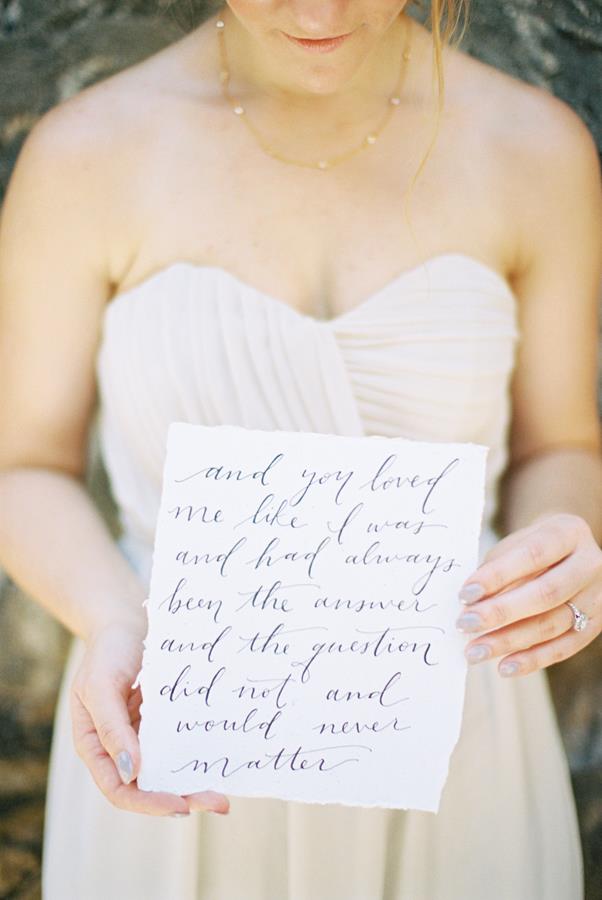 and you loved
me like I was
and had always
been the answer
and the question
did not and
would never
matter